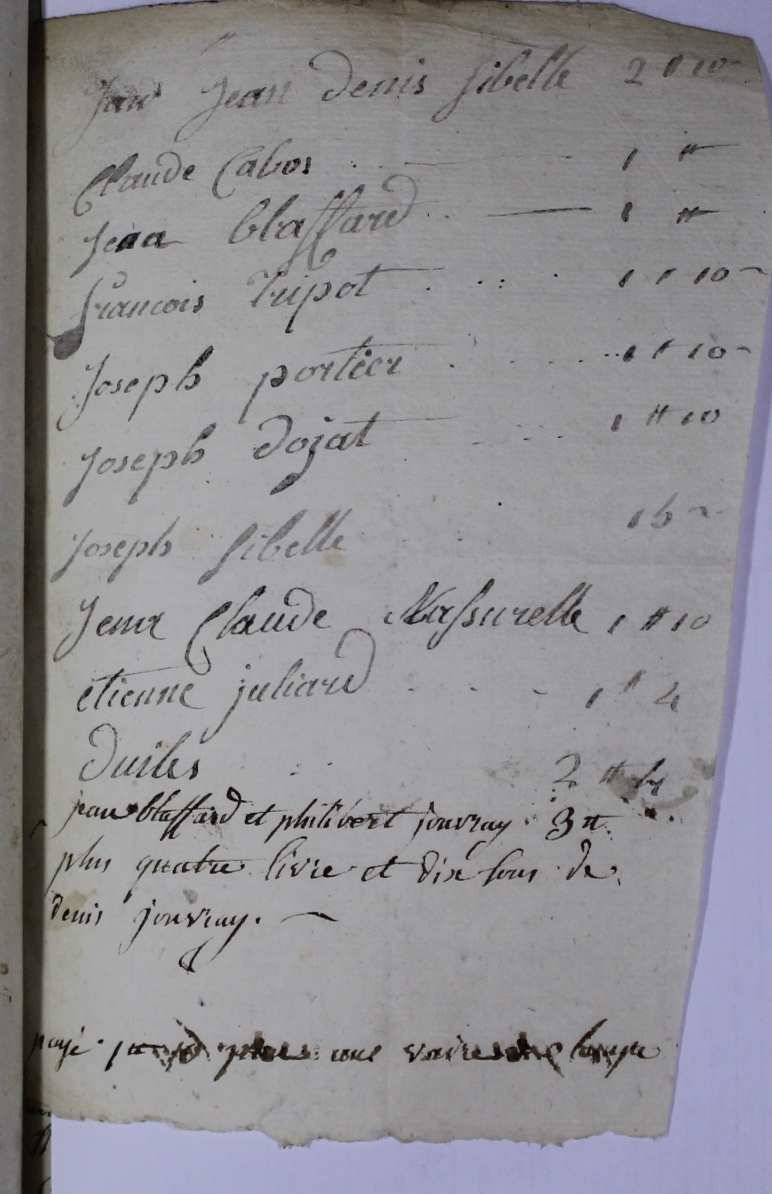 Jean Denis Sibelle 2 ₶ 10
Claude Cabos 1 ₶
Jean blassard 1 ₶
francois Tripot 1 ₶ 10
Joseph portier 1 ₶ 10
Joseph dozat 1 ₶ 10
Joseph Sibelle
Jean Claude Massurelle 1 ₶ 10
etienne juliard 1 ₶ 4
2 ₶
jean blassard et philibert jouvray 3 ₶
plus quatre livre et dix sous de
denis jouvray.
payé une